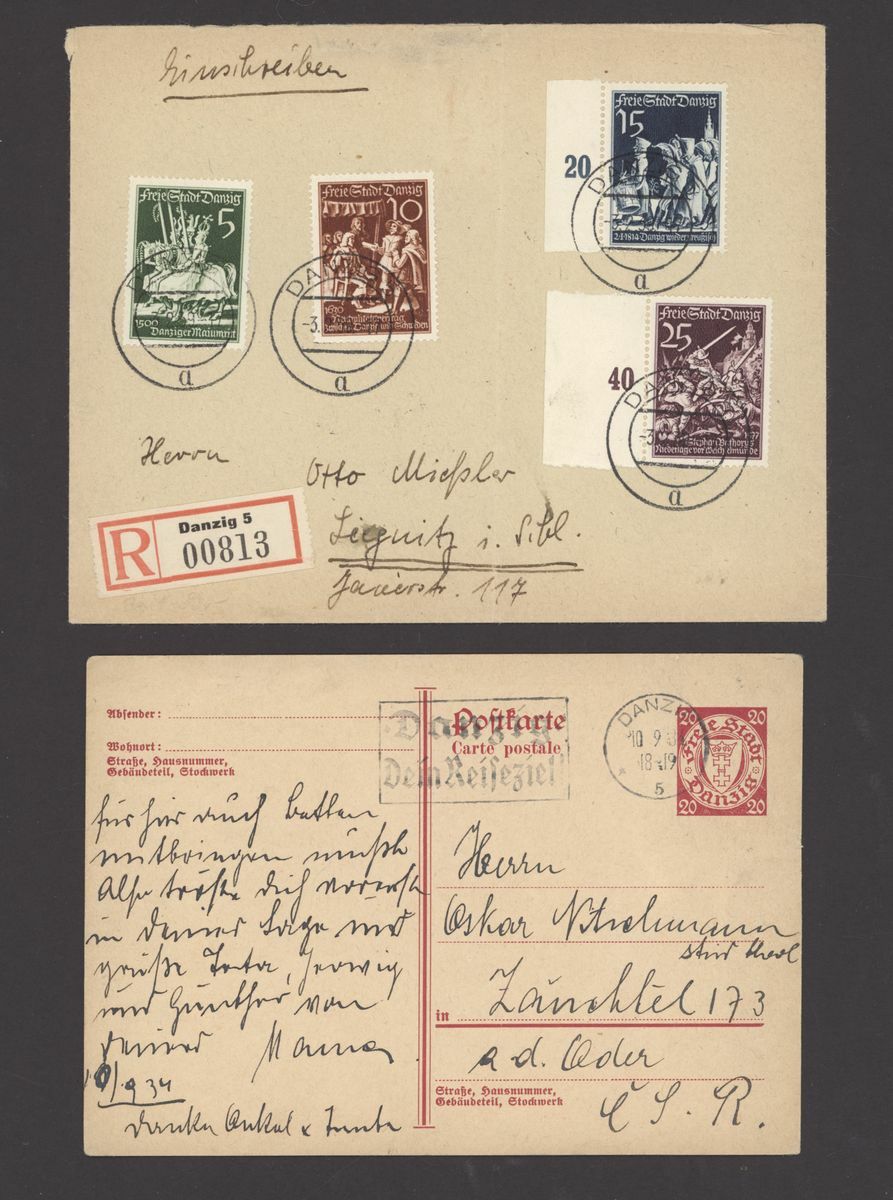 Einschreiben
Freie Stadt Danzig
15
20
DANZIG
2.1.1814 Danzig wieder preußisch
a
Freie Stadt Danzig
5
1500
Danziger Maiumritt
a
Freie Stadt Danzig
10
DANZIG
-3.
1630
Neutralitätsvertrag
zwischen Danzig und Schweden
a
Freie Stadt Danzig
25
40
DANZIG
-3.
Stephan Bathorys 1577
Niederlage vor Weichselmünde
a
Herrn
Otto Mießler
Liegnitz i. Schl.
Jauerstr. 117
R
Danzig 5
00813
Absender:
Wohnort:
Straße, Hausnummer,
Gebäudeteil, Stockwerk
Postkarte
Carte postale
Danzig
Dein Reiseziel!
DANZIG
10 9
18-19
5
20 20
Freie Stadt
Danzig
20 20
für hier auch Betten
mitbringen müßte
Also tröste Dich vorerst
in Deiner Lage und
grüße Tata,
und Günther von
Deiner Mama
10/9 34
Danke Onkel u Tante
Herrn
Oskar
stud theol
in Zauchtel 173
a. d. Oder
Č S. R.
Straße, Hausnummer,
Gebäudeteil, Stockwerk